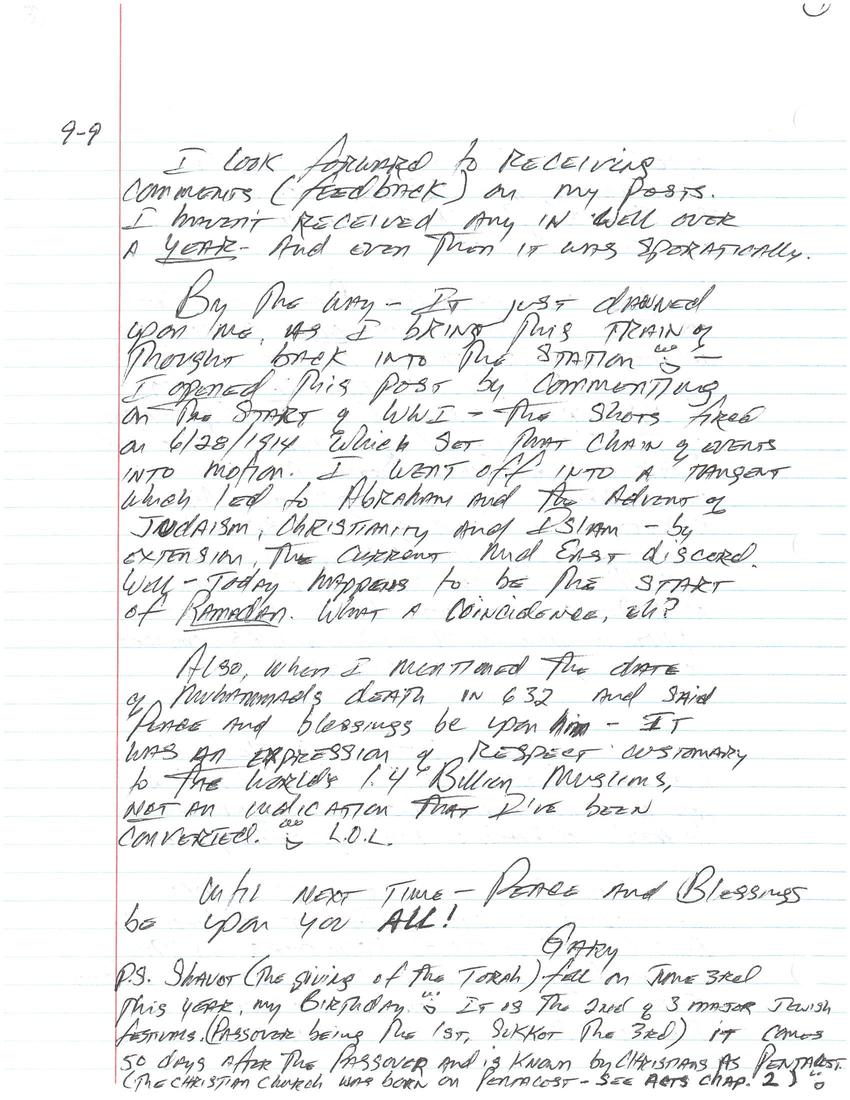 9-9
I look forward to receiving
comments (feedback) on my posts.
I haven't received any in well over
a year - and even then it was sporatically.
By the way - It just dawned
upon me, as I bring this train of
thought back into the station -
I opened this post by commenting
on the start of WWI - the shots fired
on 6/28/1914 which set that chain of events
into motion. I went off into a "tangent"
which led to Abraham and the advent of
Judaism, Christianity and Islam - by
extension, the current Mid East discord.
Well - today happens to be the start
of Ramadan. What a coincidence, eh?
Also, when I mentioned the date
of Muhammads death in 632 and said
Peace and blessings be upon him - It
was an expression of respect customary
to the worlds 1.4 Billion Muslims,
not an indication that I've been
converted. L.O.L.
Until next time - Peace and Blessings
be upon you ALL!
Gary
P.S. Shavot (the giving of the Torah) fell on June 3rd
this year, my Birthday. It is the 2nd of 3 major Jewish
festivals. (Passover being the 1st, Sukkot the 3rd) it comes
50 days after the Passover and is known by Christians as Pentacost.
(The Christian Church was born on Pentacost - see Acts Chap. 2)